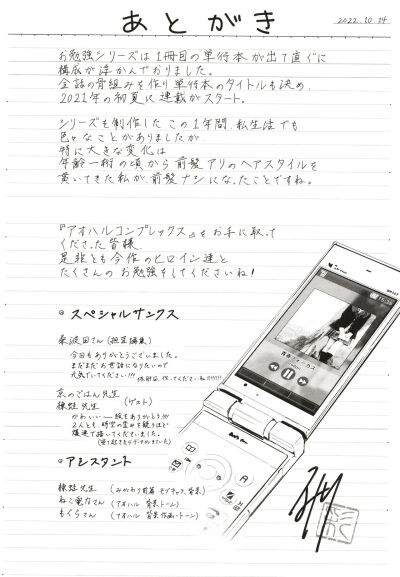 あとがき
2022.10.14
お勉強シリーズは1冊目の単行本が出て直ぐに
構成が浮かんでおりました。
全話の骨組みを作り単行本のタイトルも決め、
2021年の初夏に連載がスタート。
シリーズを制作したこの1年間、私生活でも
色々なことがありましたが、
特に大きな変化は
年齢一桁の頃から前髪アリのヘアスタイルを
貫いてきた私が、前髪ナシになったことですね。
『アオハルコンプレックス』をお手に取って
くださった皆様、
是非とも今作のヒロイン達と
たくさんのお勉強をしてくださいね!
スペシャルサンクス
桑波田さん(担当編集)
今回もありがとうございました。
まだまだお世話になりたいので
元気でいてください!!!
休刊日、作ってくださいね!!!!!!
京のごはん先生
(ゲスト)
かわいい絵をありがとう!!!
2人とも、時空の歪みを疑うほど
爆速で描いてくださいました。
アシスタント
(みがわり前篇 モブキャラ、背景)
ねこ電力さん(アオハル 背景トーン)
もぐらさん(アオハル 背景作画・トーン)